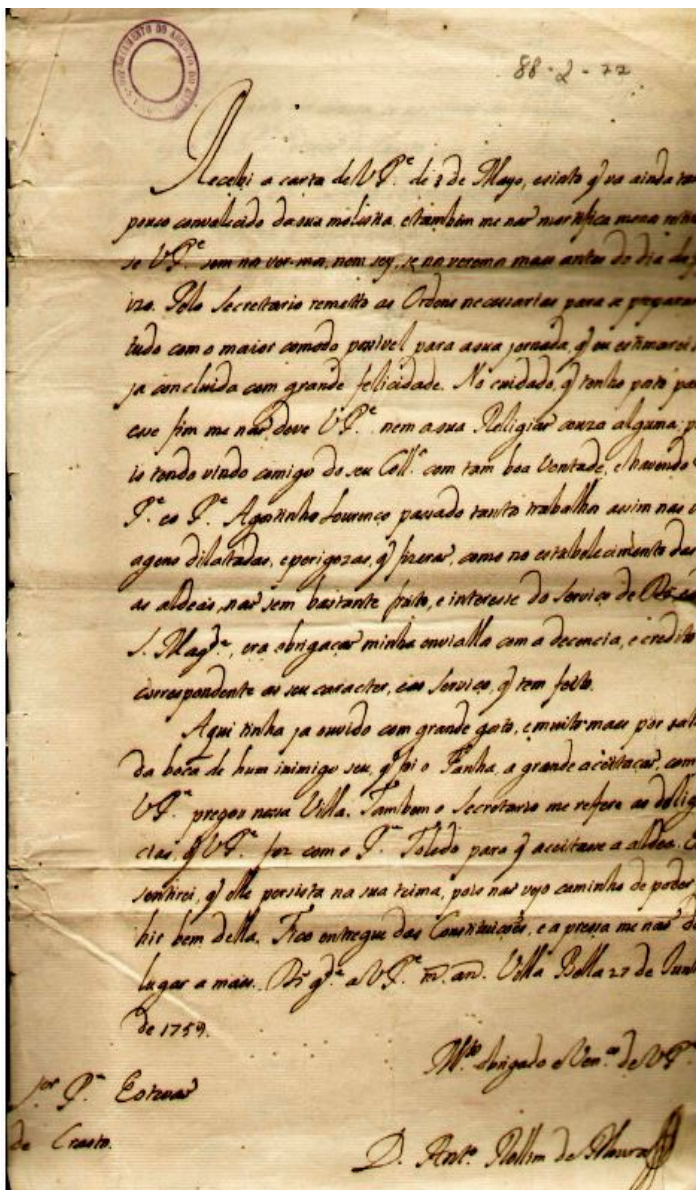 88-2-22
Recebi a carta de V P.ᵉ de 8 de Mayo, esinto q̃ va ainda
pouco convalecido dasua molestia, etambem me naõ mortifica menos
se V P.ᵉ sem nos ver-mos, nem sey, se nos veremos mais antes do dia do
izo. Pelo Secretario remetto as Ordens necessarias para se
tudo com o maior comodo posivel para asua jornada, q̃ eu estimarei
ja concluida com grande felicidade. No cuidado, q̃ tenho posto
esse fim me naõ deve V P.ᵉ nem asua Religiaõ couza alguma;
is tendo vindo comigo do seu Coll.º com tam boa Vontade, ehavendo
P.ᵉ eo P.ᵉ Agostinho Lourenço passado tanto trabalho assim nas
agens dilatadas, eperigozas, q̃ fizeraõ, como no estabelecimento
as aldeas, naõ sem bastante fruto, e interesse do Serviço de
S. Mag.ᵈᵉ, era obrigaçaõ minha envialla com a decencia, e credito
correspondente ao seu caracter, eao Serviço, q̃ tem feito.
Aqui tinha ja ouvido com grande gosto, emuito mais por
da boca de hum inimigo seu, q̃ foi o Fanha, a grande aceitaçaõ, com
V P.ᵉ pregou nessa Villa. Tambem o Secretario me refere as
cias, q̃ V P.ᵉ fez com o P.ᵉ Toledo para q̃ aceitasse a aldea.
sentirei, q̃ elle persista na sua teima, pois naõ vejo caminho de poder
hir bem della. Fico entregue das Constituiçoẽs, e a pressa me naõ
lugar a mais. D.ˢ g.ᵈᵉ a V P.ᵉ m. an. Villa Bella 27 de
de 1759.
M.ᵗᵒ obrigado e Ven.ᵒʳ de V P.ᵉ
S.ᵒʳ P.ᵉ Estevaõ
de Crasto.
D. Ant.º Rollim de Moura